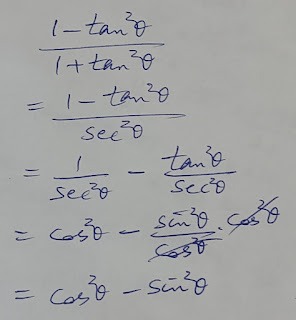 (1 - tan²θ)/(1 + tan²θ)
= (1 - tan²θ)/sec²θ
= 1/sec²θ - tan²θ/sec²θ
= cos²θ - sin²θ/cos²θ · cos²θ
= cos²θ - sin²θ